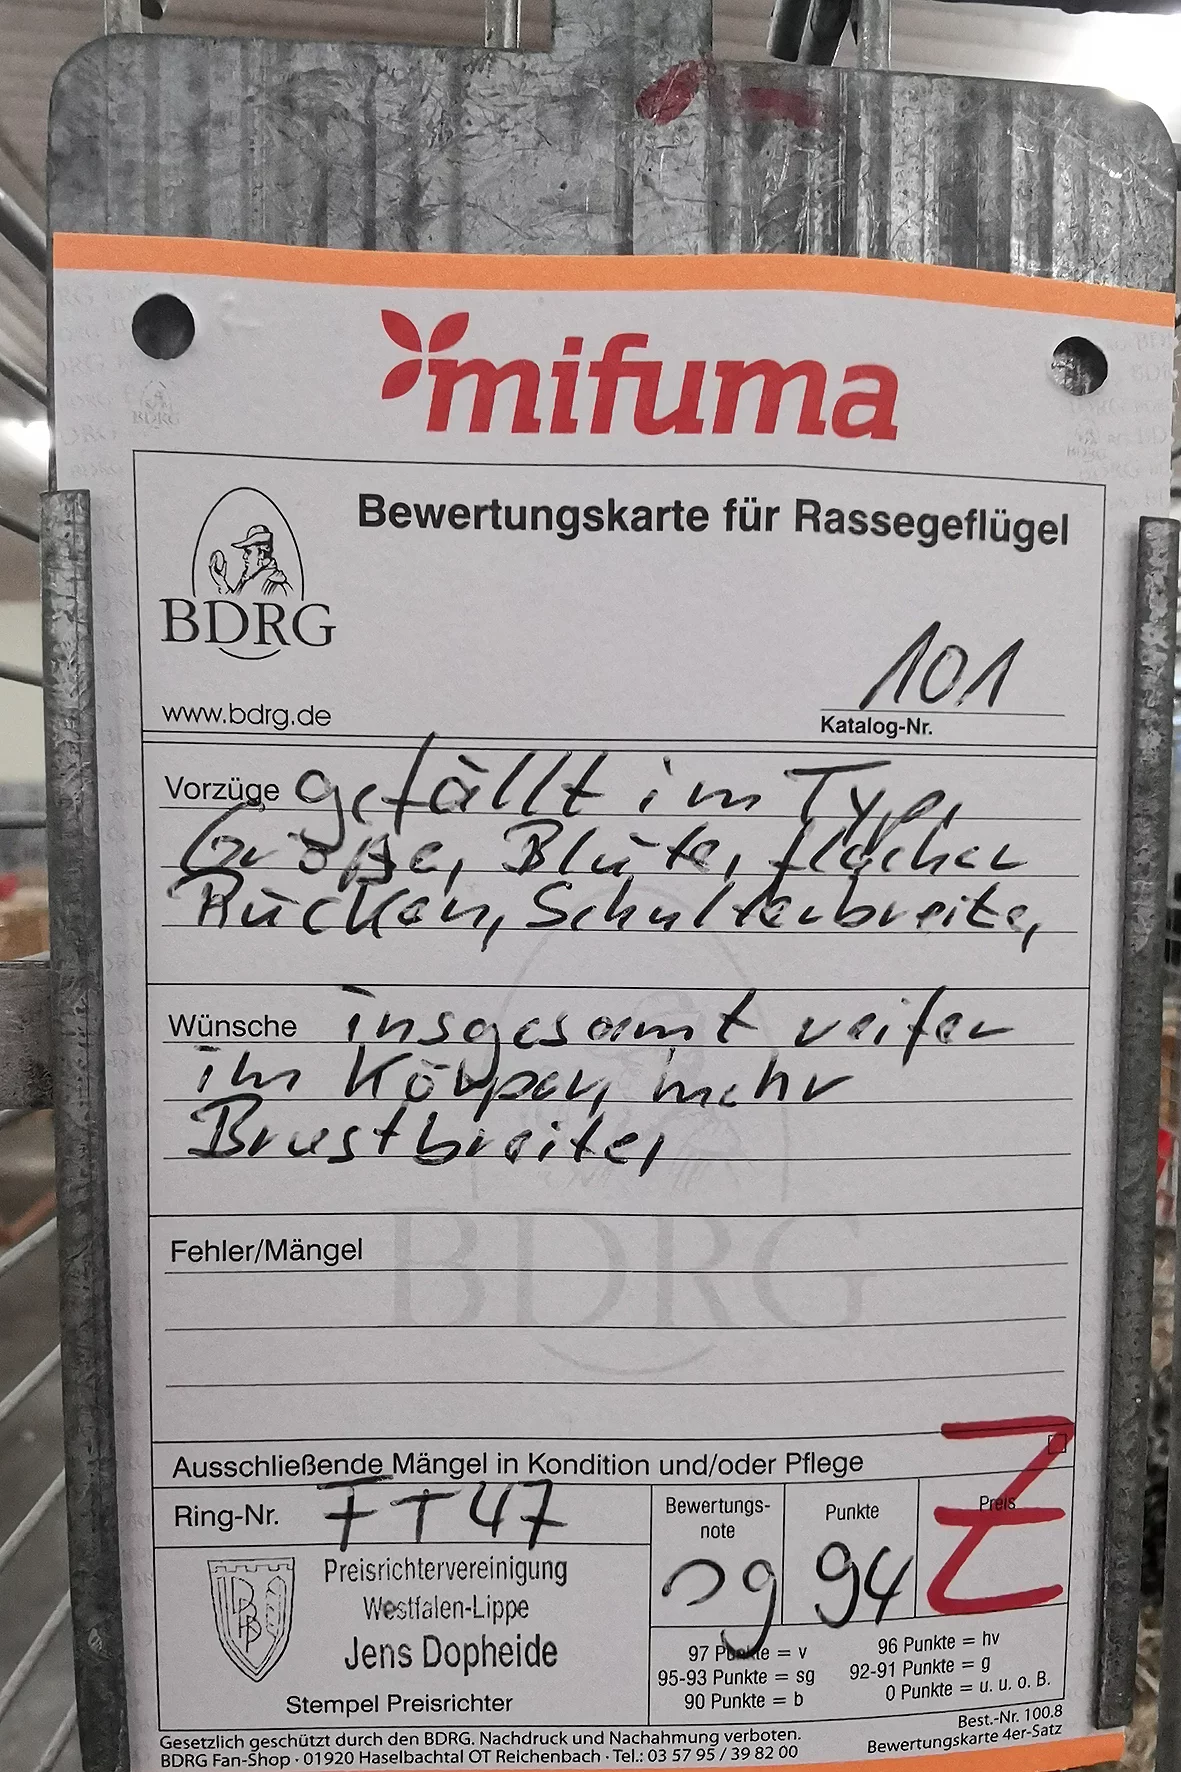 mifuma
Bewertungskarte für Rassegeflügel
BDRG
www.bdrg.de
101
Katalog-Nr.
Vorzüge gefällt im Typ,
Größe, Blüte, flacher
Rücken, Schulterbreite,
Wünsche insgesamt reifer
im Körper, mehr
Brustbreite,
BDRG
Fehler/Mängel
Ausschließende Mängel in Kondition und/oder Pflege
Ring-Nr. FT47
Bewertungs-
note
sg
Punkte
94
Preis
Z
Preisrichtervereinigung
Westfalen-Lippe
Jens Dopheide
Stempel Preisrichter
97 Punkte = v
96 Punkte = hv
95-93 Punkte = sg
92-91 Punkte = g
90 Punkte = b
0 Punkte = u. u. o. B.
Gesetzlich geschützt durch den BDRG. Nachdruck und Nachahmung verboten.
Best.-Nr. 100.8
BDRG Fan-Shop · 01920 Haselbachtal OT Reichenbach · Tel.: 03 57 95 / 39 82 00
Bewertungskarte 4er-Satz